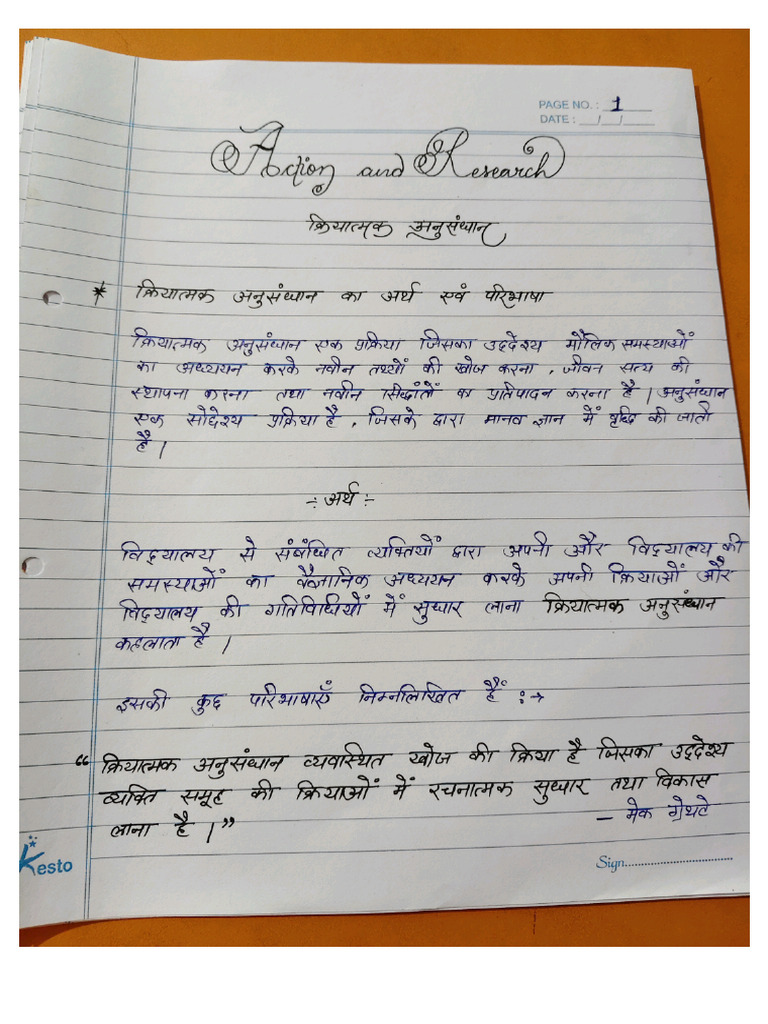 PAGE NO. : 1
DATE : __/__/____
Action and Research
क्रियात्मक अनुसंधान
* क्रियात्मक अनुसंधान का अर्थ एवं परिभाषा
क्रियात्मक अनुसंधान एक प्रक्रिया जिसका उद्देश्य मौलिक समस्याओं
का अध्ययन करके नवीन तथ्यों की खोज करना , जीवन सत्य की
स्थापना करना तथा नवीन सिद्धांतों का प्रतिपादन करना है । अनुसंधान
एक सोद्देश्य प्रक्रिया है , जिसके द्वारा मानव ज्ञान में वृद्धि की जाती
है ।
-: अर्थ :-
विद्यालय से संबंधित व्यक्तियों द्वारा अपनी और विद्यालय की
समस्याओं का वैज्ञानिक अध्ययन करके अपनी क्रियाओं और
विद्यालय की गतिविधियों में सुधार लाना क्रियात्मक अनुसंधान
कहलाता है ।
इसकी कुछ परिभाषाएँ निम्नलिखित हैं :→
“ क्रियात्मक अनुसंधान व्यवास्थित खोज की क्रिया है जिसका उद्देश्य
व्यक्ति समूह की क्रियाओं में रचनात्मक सुधार तथा विकास
लाना है । ”
– मेक ग्रेथटे
Kesto
Sign..............................